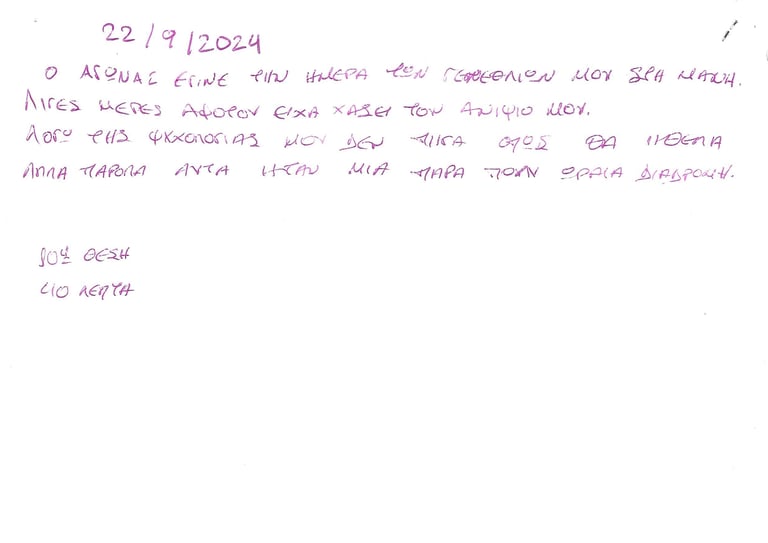 22/9/2024
Ο ΑΓΩΝΑΣ ΕΓΙΝΕ ΤΗΝ ΗΜΕΡΑ ΤΩΝ ΓΕΝΕΘΛΙΩΝ ΜΟΥ ΣΤΗ ΜΑΝΗ.
ΛΙΓΕΣ ΜΕΡΕΣ ΑΦΟΤΟΥ ΕΙΧΑ ΧΑΣΕΙ ΤΟΝ ΑΝΙΨΙΟ ΜΟΥ.
ΛΟΓΩ ΤΗΣ ΨΥΧΟΛΟΓΙΑΣ ΜΟΥ ΔΕΝ ΠΗΓΑ ΟΠΩΣ ΘΑ ΗΘΕΛΑ
ΑΛΛΑ ΠΑΡΟΛΑ ΑΥΤΑ ΗΤΑΝ ΜΙΑ ΠΑΡΑ ΠΟΛΥ ΩΡΑΙΑ ΔΙΑΔΡΟΜΗ.
ΘΕΣΗ
ΛΕΠΤΑ